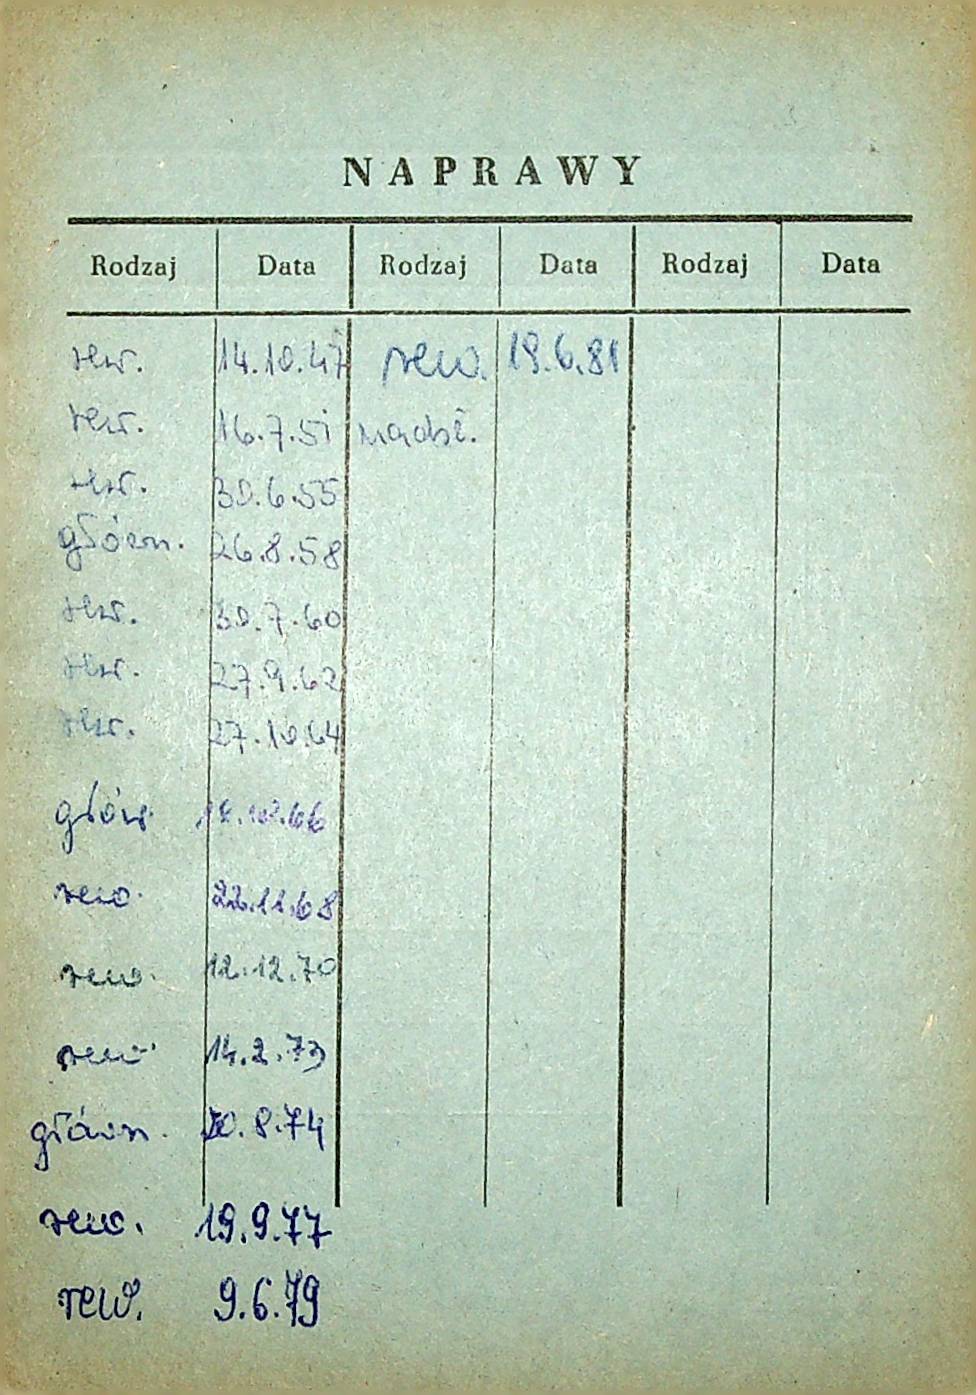 NAPRAWY
Rodzaj Data Rodzaj Data Rodzaj Data
rew. 14.10.47 rew. 19.6.81
rew. 16.7.51
rew. 30.6.55
główn. 26.8.58
rew. 30.7.60
rew. 27.9.62
rew. 27.10.64
główn
rew. 22.11.68
rew. 12.12.70
rew. 14.2.73
główn. 20.8.74
rew. 19.9.77
rew. 9.6.79